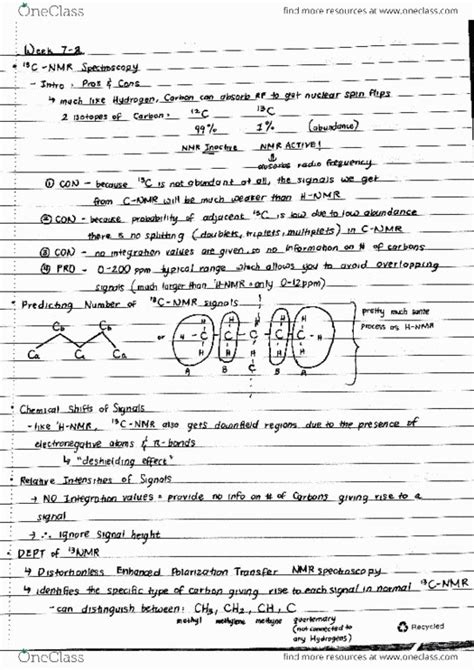 OneClass
find more resources at www.oneclass.com
Week 7-2
• ¹³C-NMR Spectroscopy
- Intro: Pros & Cons
↳ much like Hydrogen, Carbon can absorb RF to get nuclear spin flips
2 isotopes of Carbon: ¹²C ¹³C
99% 1% (abundance)
NMR Inactive NMR ACTIVE!
absorbs radio frequency
① CON - because ¹³C is not abundant at all, the signals we get
from C-NMR will be much weaker than H-NMR
② CON - because probability of adjacent ¹³C is low due to low abundance
there is no splitting (doublets, triplets, multiplets) in C-NMR
③ CON - no integration values are given, so no information on # of carbons
④ PRO - 0-200 ppm typical range which allows you to avoid overlapping
signals (much larger than ¹H-NMR only 0-12ppm)
• Predicting Number of ¹³C-NMR signals
Cb Cb
Ca C Ca
or
H H H H H
H-C-C-C-C-C-H
H H H H
A B C B A
pretty much same
process as H-NMR
• Chemical Shifts of Signals
- like ¹H-NMR, ¹³C-NMR also gets downfield regions due to the presence of
electronegative atoms & π-bonds
↳ "deshielding effect"
• Relative Intensities of Signals
→ NO Integration values = provide no info on # of Carbons giving rise to a
signal
→ ∴ ignore signal height
• DEPT of ¹³NMR
↳ Distortionless Enhanced Polarization Transfer NMR spectroscopy
↳ identifies the specific type of carbon giving rise to each signal in normal ¹³C-NMR
- can distinguish between: CH₃, CH₂, CH, C
methyl methylene methyne quarternary
(not connected to
any Hydrogens)
Recycled
OneClass
find more resources at www.oneclass.com